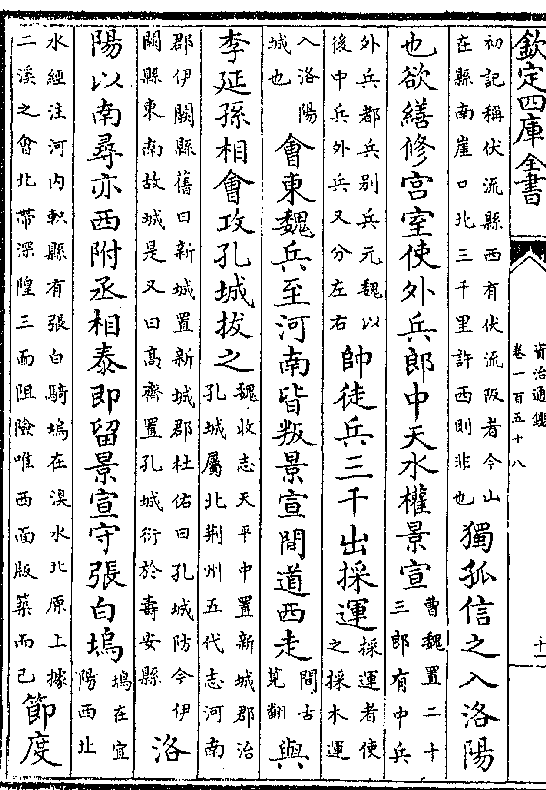 欽定四庫全書
資治通鑑
卷一百五十八
十一
初記稱伏流縣西有伏流阪者今山
在縣南崖口北三千里許西則非也
獨孤信之入洛陽
也欲繕修宮室使外兵郎中天水權景宣
曹魏置二十
三郎有中兵
外兵都兵别兵元魏以
後中兵外兵又分左右
帥徒兵三千出採運
採運者使
之採木運
入洛陽
城也
會東魏兵至河南皆叛景宣間道西走
間古
莧翻
與
李延孫相會攻孔城拔之
魏收志天平中置新城郡治
孔城屬北荆州五代志河南
郡伊闕縣舊曰新城置新城郡杜佑曰孔城防今伊
闕縣東南故城是又曰高齊置孔城衍於壽安縣
洛
陽以南尋亦西附丞相泰即留景宣守張白塢
塢在宜
陽西北
水經注河内軹縣有張白騎塢在湨水北原上據
二溪之會北帶深隍三面阻險唯西面版築而已
節度